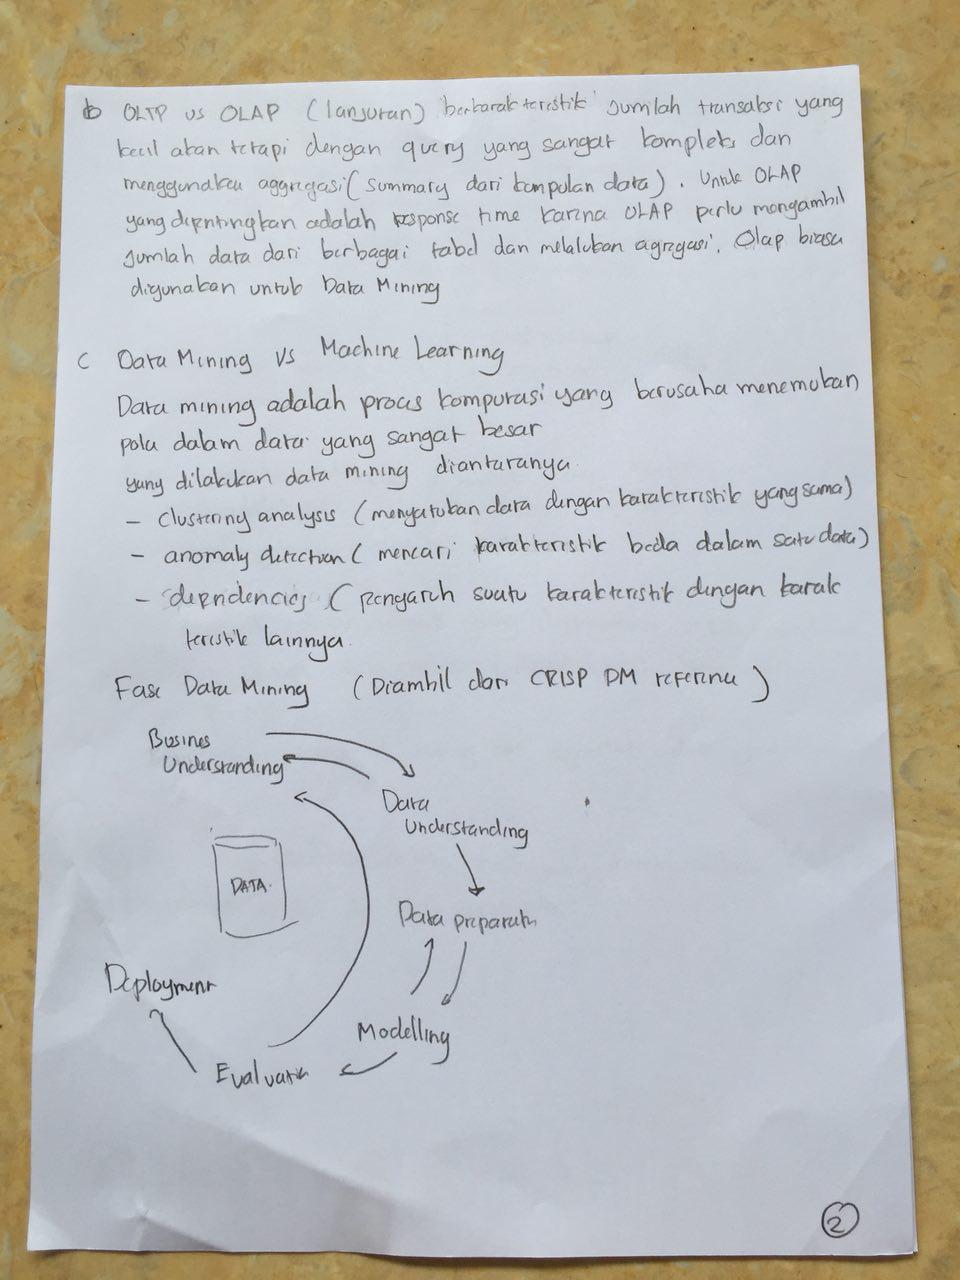 b OLTP vs OLAP (lanjutan) berkarakteristik jumlah transaksi yang
kecil akan tetapi dengan query yang sangat kompleks dan
menggunakan aggregasi (summary dari kumpulan data). Untuk OLAP
yang dipentingkan adalah response time karena OLAP perlu mengambil
jumlah data dari berbagai tabel dan melakukan agregasi. Olap biasa
digunakan untuk Data Mining
c Data Mining vs Machine Learning
Data mining adalah proces komputasi yang berusaha menemukan
pola dalam data yang sangat besar
yang dilakukan data mining diantaranya
- clustering analysis (menyatukan data dengan karakteristik yang sama)
- anomaly detection (mencari karakteristik beda dalam satu data)
- dependencies (pengaruh suatu karakteristik dengan karak
teristik lainnya.
Fase Data Mining (Diambil dari CRISP DM reference)
Busines
Understanding
Data
Understanding
DATA
Data preparatn
Deployment
Modelling
Evaluatin
2